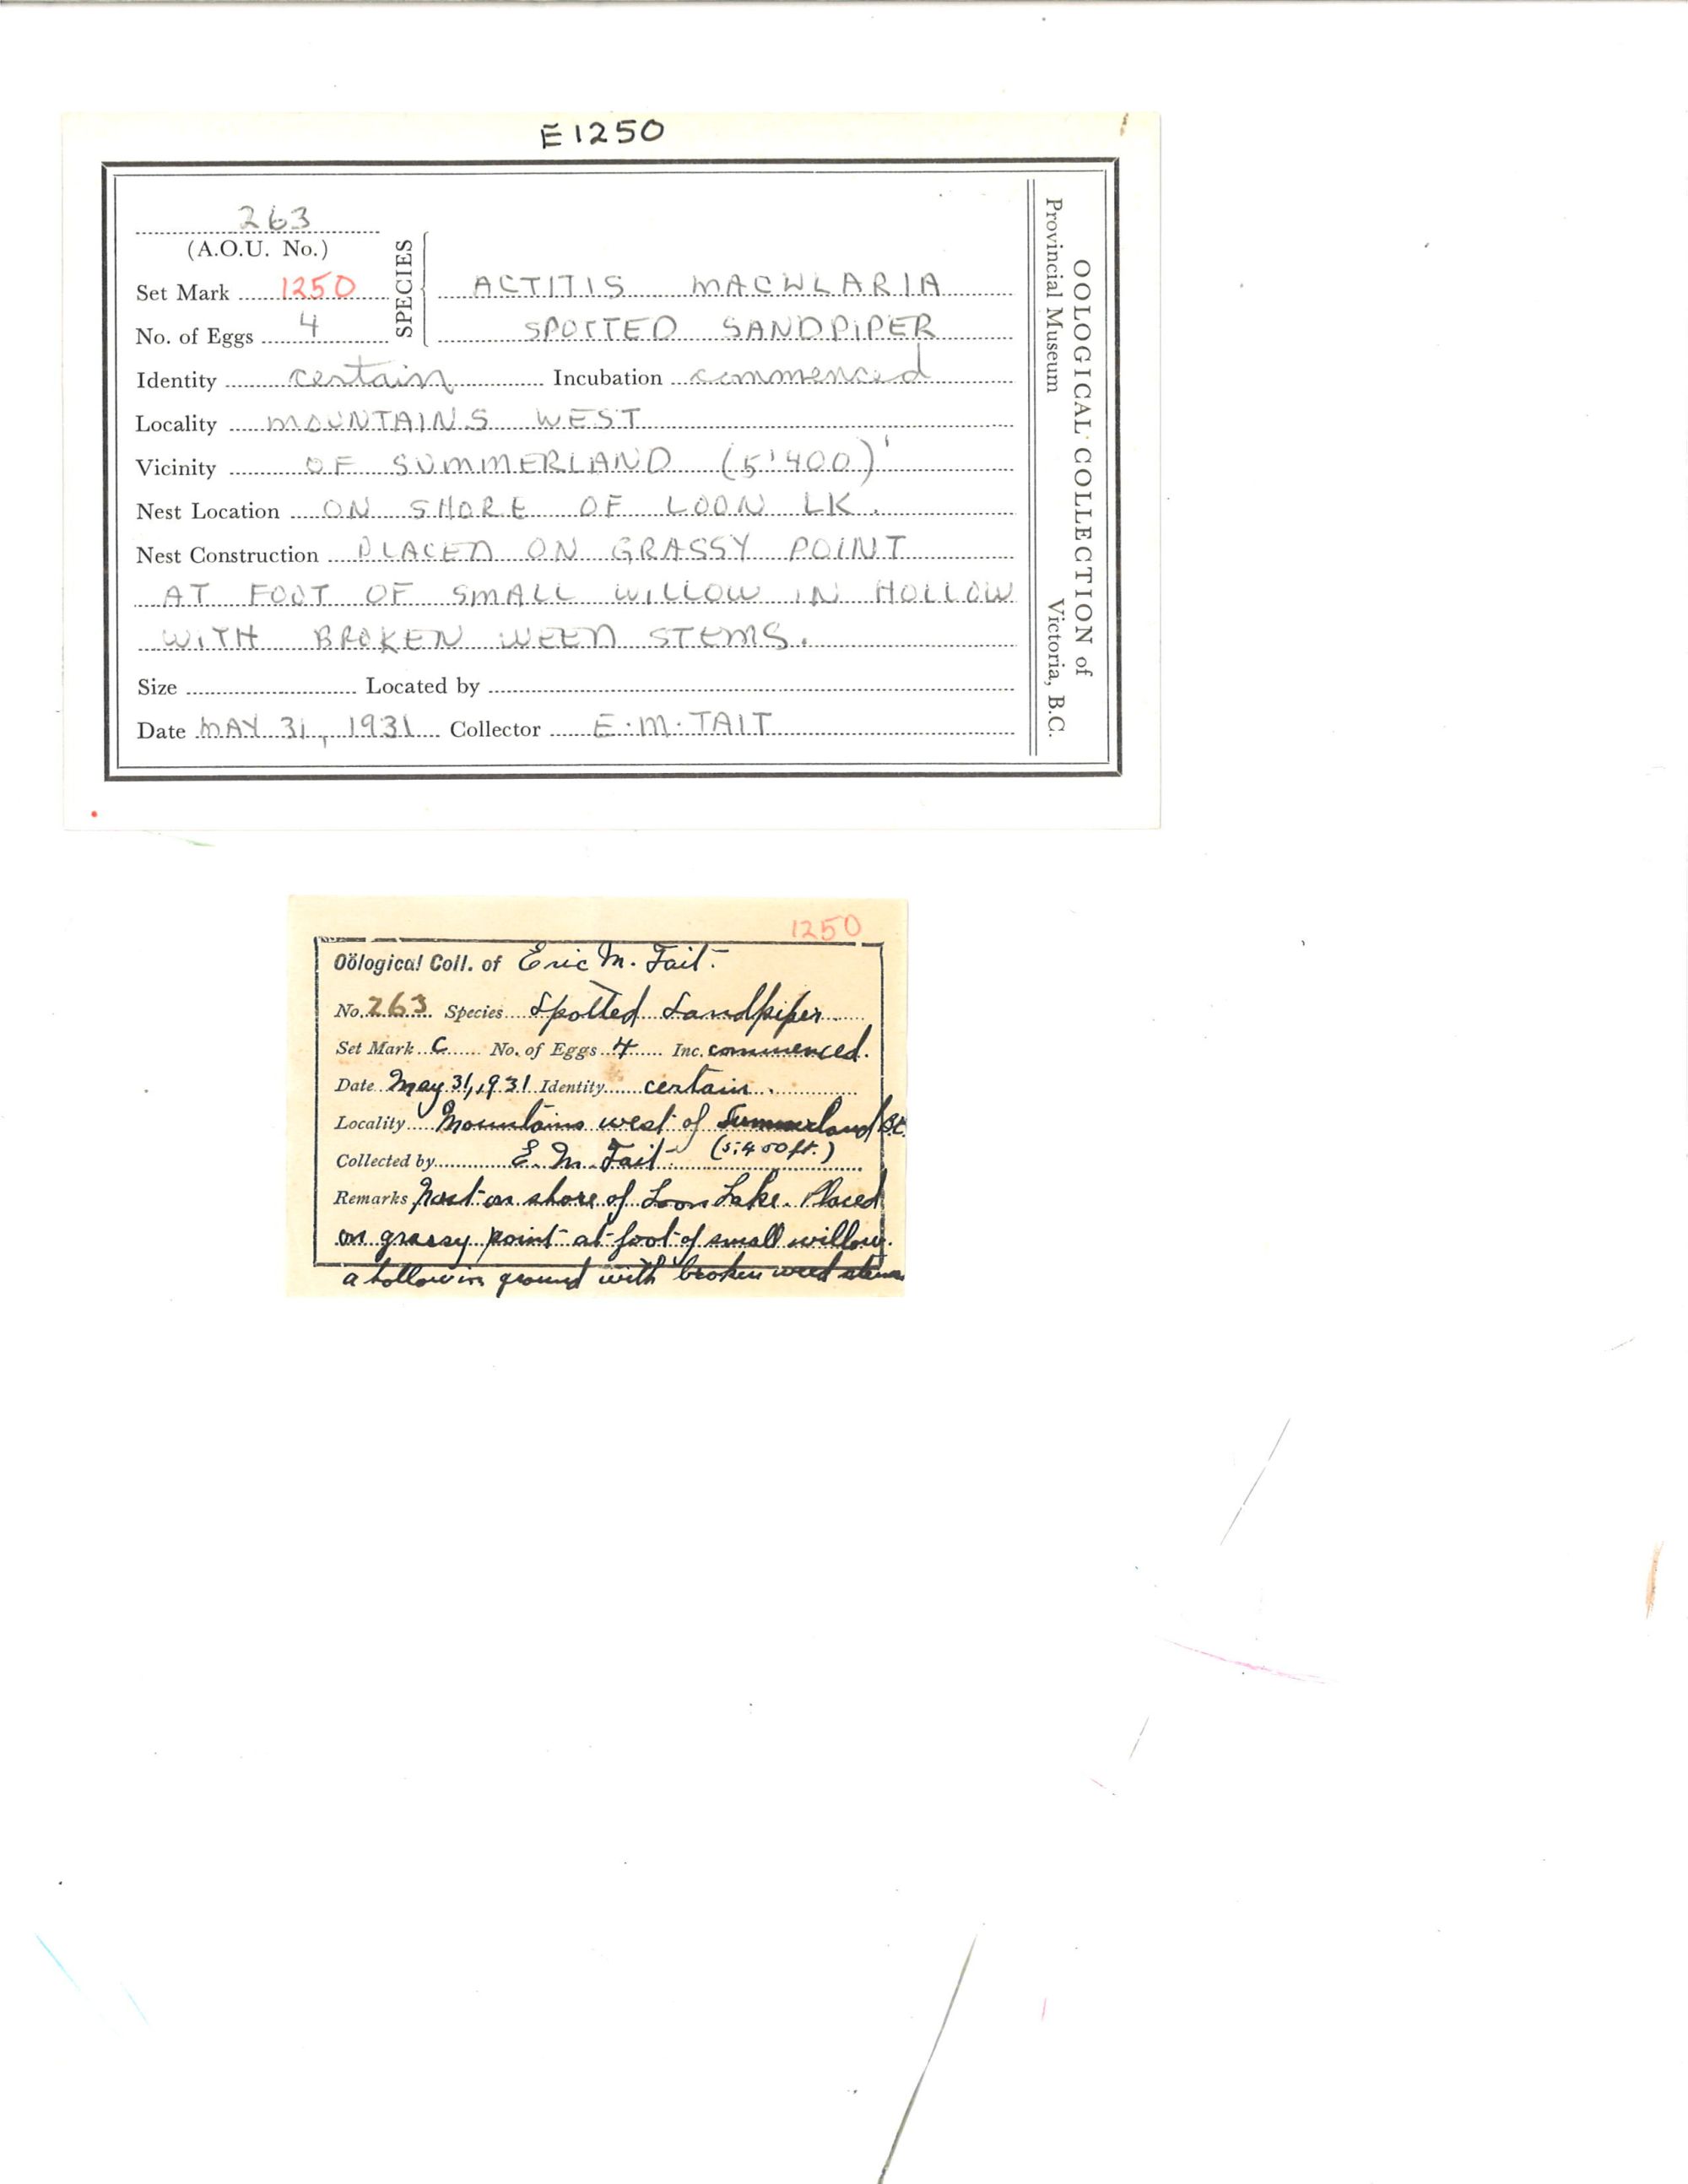 E1250
263
(A.O.U. No.)
SPECIES
Set Mark 1250
ACTITIS MACULARIA
No. of Eggs 4
SPOTTED SANDPIPER
Identity certain Incubation commenced
Locality MOUNTAINS WEST
Vicinity OF SUMMERLAND (5'400)'
Nest Location ON SHORE OF LOON LK.
Nest Construction PLACED ON GRASSY POINT
AT FOOT OF SMALL WILLOW IN HOLLOW
WITH BROKEN WEED STEMS.
Size Located by
Date MAY 31, 1931 Collector E.M.TAIT
OOLOGICAL COLLECTION of
Provincial Museum Victoria, B.C.
1250
Oölogical Coll. of Eric M. Tait.
No. 263 Species Spotted Sandpiper
Set Mark C No. of Eggs 4 Inc. commenced.
Date May 31, 1931 Identity certain.
Locality Mountains west of Summerland B.C.
Collected by E. M. Tait (5,400 ft.)
Remarks Nest on shore of Loon Lake. Placed
on grassy point at foot of small willow.
a hollow in ground with broken weed stems